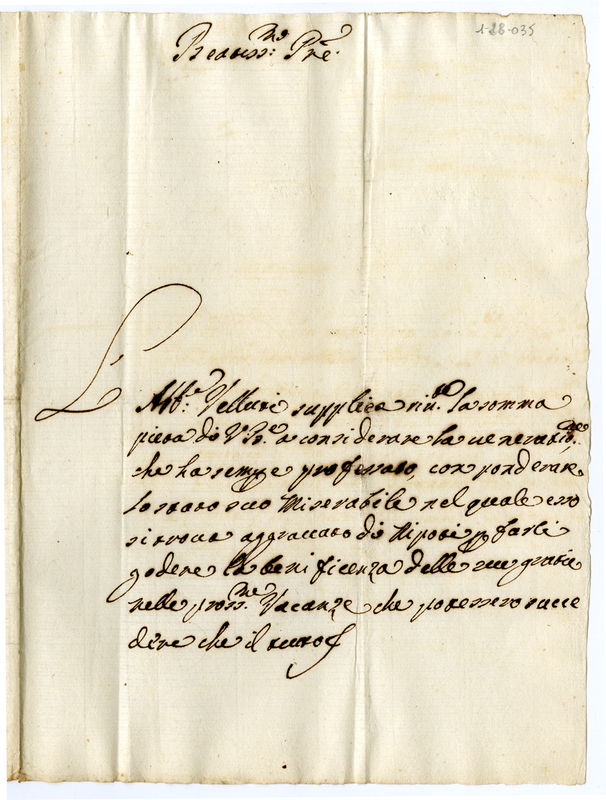 1-28-035
Beatiss.mo Pre.
L'
Abb.e Velluti supplica riv.te la somma
pietà di V. B.e a considerare la veneratio.ne
che ha sempre professato, con ponderare
lo stato suo miserabile nel quale esso
si trova aggravato di Nipoti p farli
godere la beneficenza delle sue gratie
nelle pross.me Vacanze che potessero succe
dere che il tutto